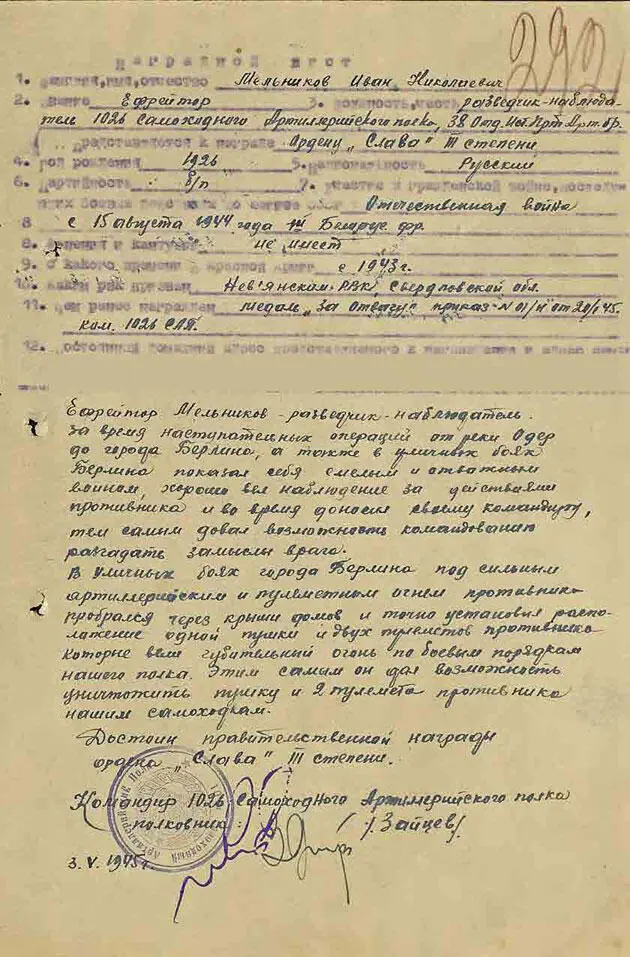 292
НАГРАДНОЙ ЛИСТ
1. Фамилия, имя, отчество Мельников Иван Николаевич
2. Звание Ефрейтор 3. Должность, часть разведчик-наблюда-
тель 1026 Самоходного Артиллерийского полка, 38 Отд.
представляется к награде Ордену „Слава" III степени
4. Год рождения 1926 5. Национальность Русский
6. Партийность б/п 7. Участие в гражданской войне,
Отечественная война
8 с 15 августа 1944 года Белорус фр.
8. ранения и контузии не имеет
9. С какого времени в Красной Армии с 1943 г.
10. Каким РВК призван Нев'янским РВК, Свердловской обл.
11. Чем ранее награжден медаль „За Отвагу", приказ N 01/н от 45.
ком. 1026 САП.
12.
Ефрейтор Мельников - разведчик-наблюдатель.
За время наступательных операций от реки Одер
до города Берлино, а также в уличных боях
Берлина показал себя смелым и отважным
воином, хорошо вел наблюдение за действиями
противника и во время доносил своему командиру,
тем самым довал возможность командованию
разгадать замыслы врага.
В уличных боях города Берлина под сильным
артиллерийским и пулеметным огнем противника
пробрался через крыши домов и точно установил распо-
ложение одной пушки и двух пулеметов противника
которые вели губительный огонь по боевым порядкам
нашего полка. Этим самым он дал возможность
уничтожить пушку и 2 пулемета противника
нашим самоходкам.
Достоин правительственной награды
ордена „Слава" III степени.
Командир 1026 Самоходного Артиллерийского полка
полковник: /Зайцев/
3. V. 1945 г.